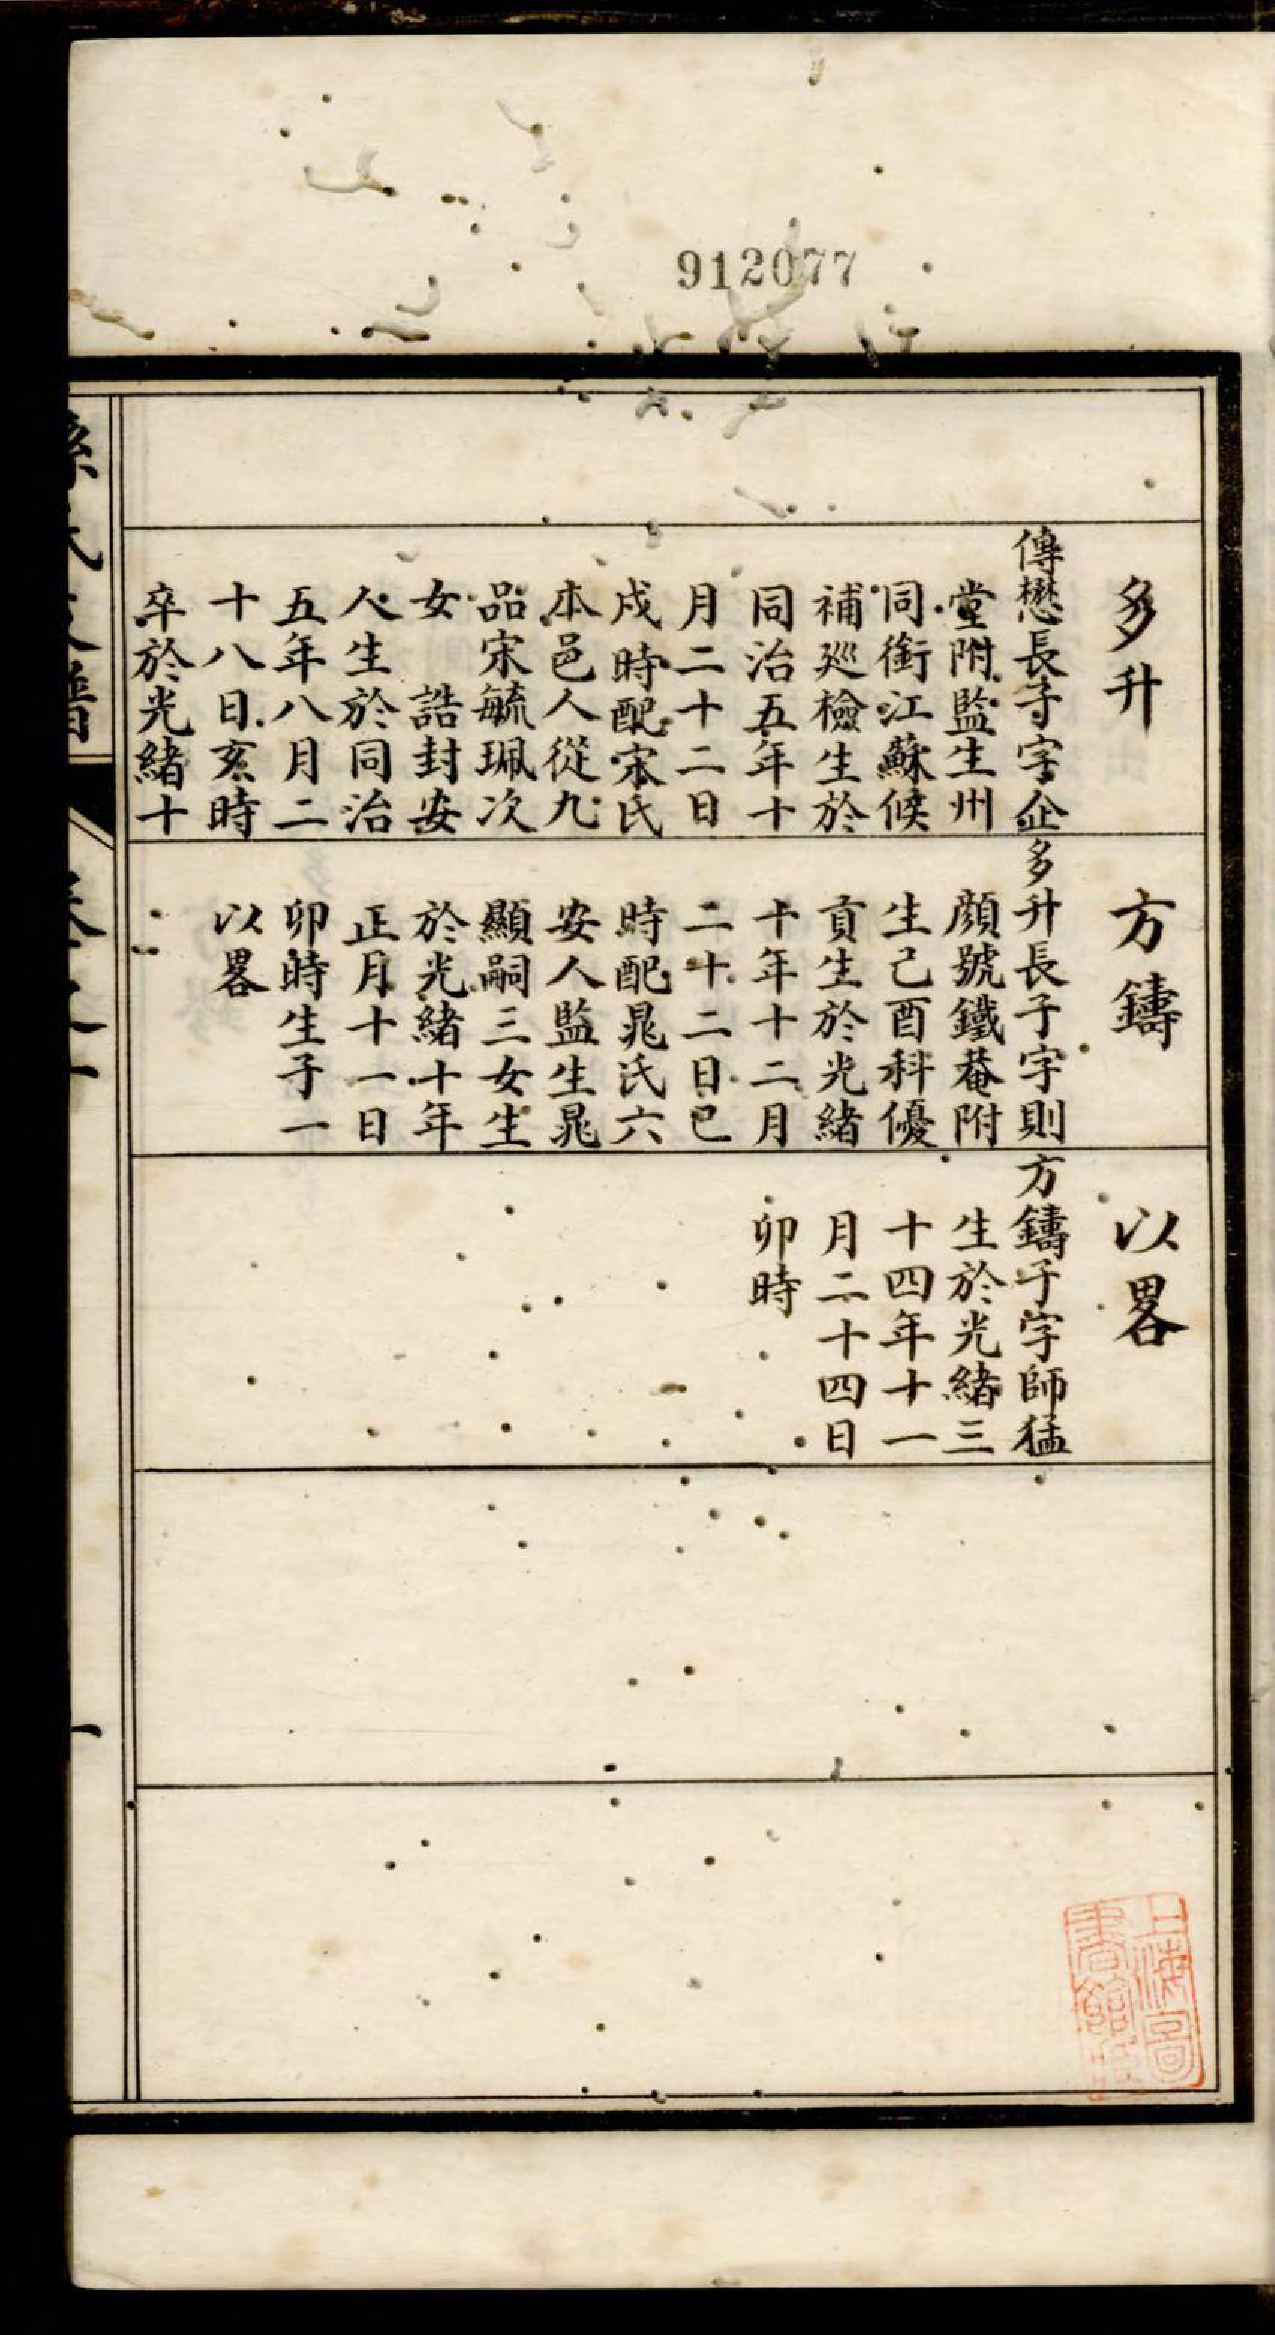 912077
多升
傳懋長子字企
堂附監生州
同銜江蘇候
補巡檢生於
同治五年十
月二十二日
戌時配宋氏
本邑人從九
品宋毓珮次
女 誥封安
人生於同治
五年八月二
十八日亥時
卒於光緒十
方鑄
多升長子字則
顏號鐵菴附
生己酉科優
貢生於光緒
十年十二月
二十二日巳
時配晁氏六
安人監生晁
顯嗣三女生
於光緒十年
正月十一日
卯時生子一
以畧
以畧
方鑄子字師猛
生於光緒三
十四年十一
月二十四日
卯時
孫氏支譜
卷之十
一
上海圖
書館藏